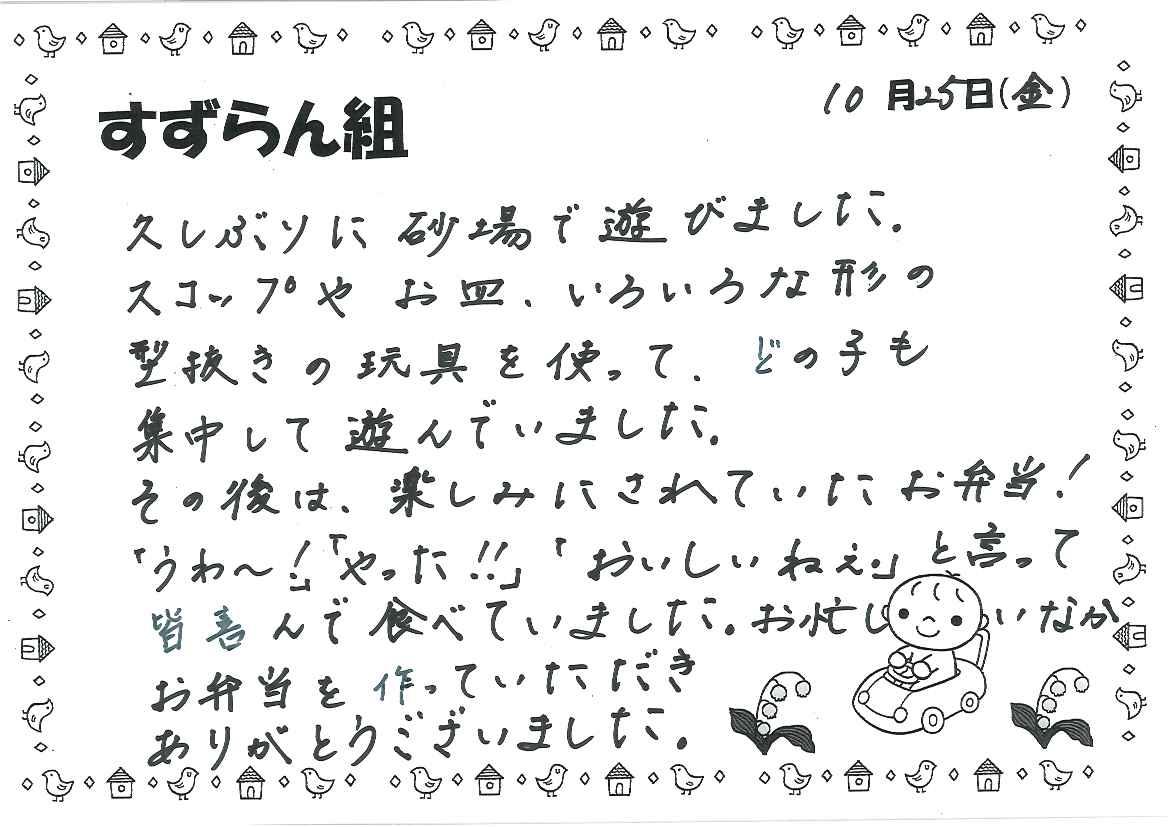 すずらん組
10月25日(金)
久しぶりに砂場で遊びました。
スコップや お皿、いろいろな形の
型抜きの玩具を使って、どの子も
集中して遊んでいました。
その後は、楽しみにされていたお弁当!
「うわ〜!」「やった!!」「おいしいねぇ」と言って
皆喜んで食べていました。お忙しいなか
お弁当を作っていただき
ありがとうございました。